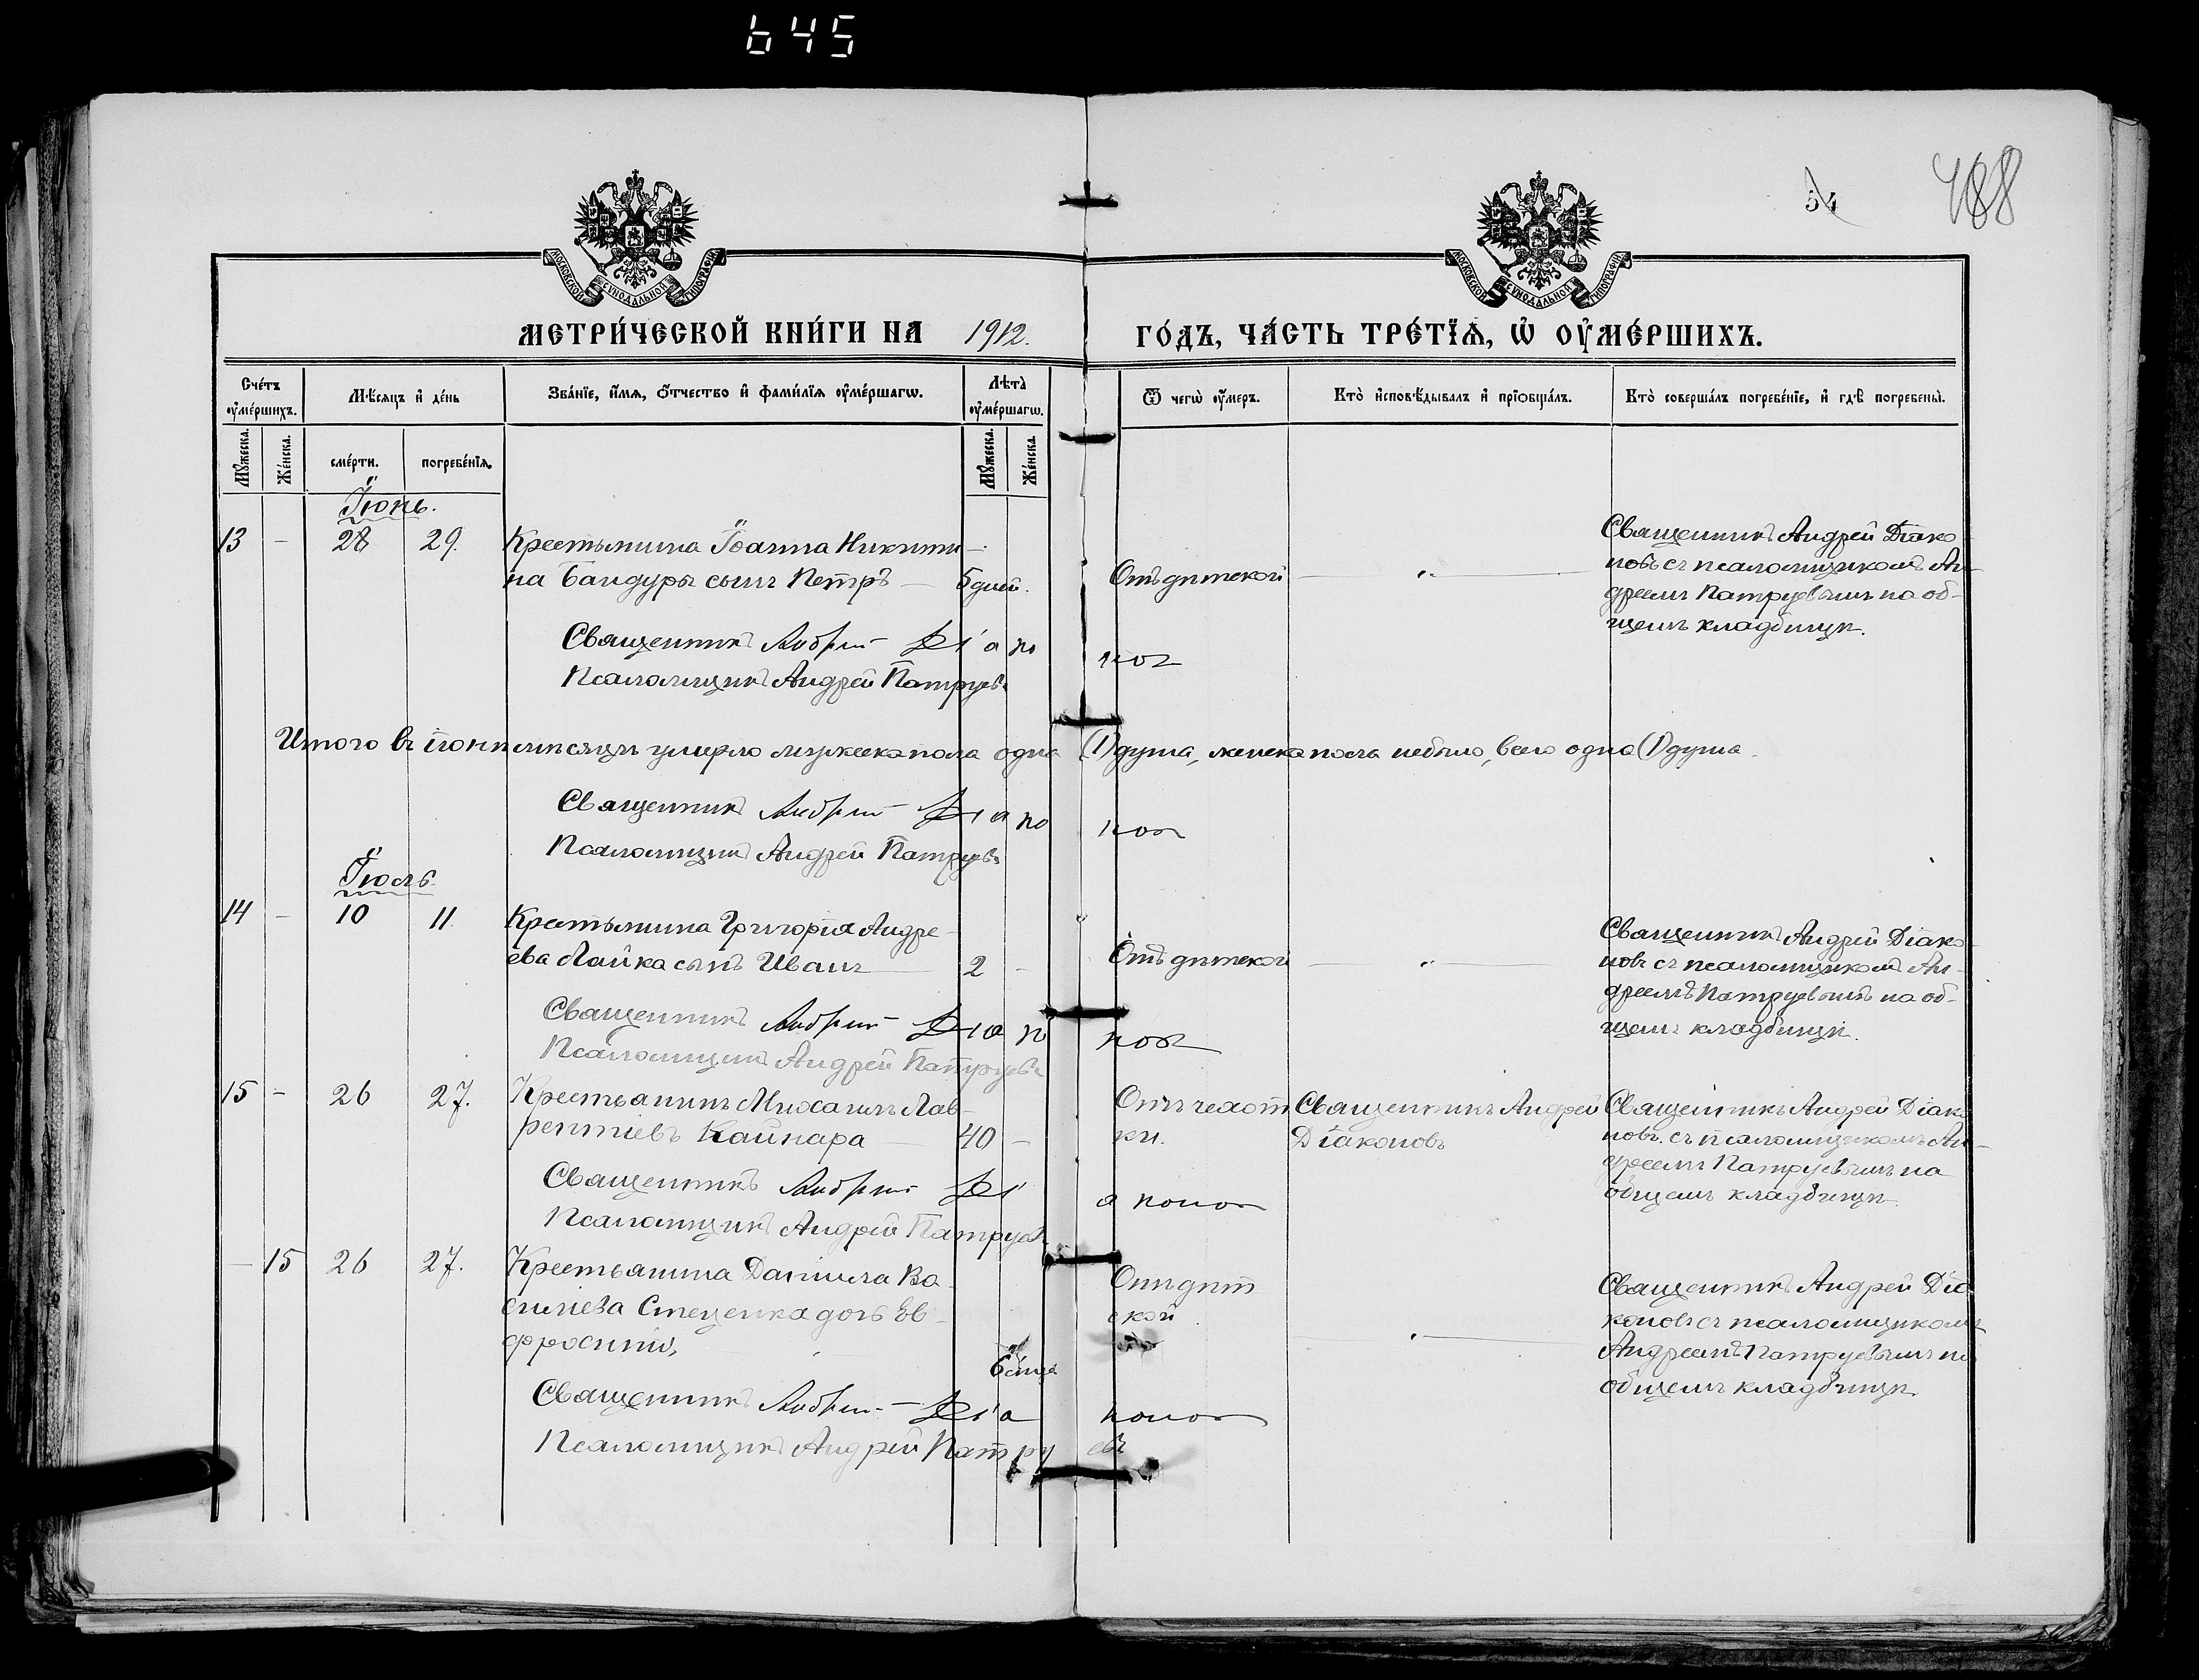 645
54
488
МОСКОВСКОЙ СѴНОДАЛЬНОЙ ТИПОГРАФІИ
МОСКОВСКОЙ СѴНОДАЛЬНОЙ ТИПОГРАФІИ
МЕТРИ́ЧЕСКОЙ КНИ́ГИ НА 1912. ГО́ДЪ, ЧА́СТЬ ТРЕ́ТЇѦ, Ѡ҆ ОУ҆МЕ́РШИХЪ.
Сче́тъ оу҆ме́ршихъ.
Мѣ́сяцъ и҆ де́нь
Зва́нїе, и҆́мѧ, ѻ҆́тчество и҆ фами́лїѧ оу҆ме́ршагѡ.
Лѣ́та оу҆ме́ршагѡ.
Ѿ чегѡ̀ оу҆́меръ.
Кто̀ и҆сповѣ́дывалъ и҆ прїѡбща́лъ.
Кто̀ соверша́лъ погребе́нїе, и҆ гдѣ̀ погребены̀.
Мꙋ́жеска.
Же́нска.
сме́рти.
погребе́нїѧ.
Мꙋ́жеска.
Же́нска.
Іюнь.
13 - 28 29. Крестьянина Іоанна Никити-
на Бандуры сынъ Петръ — 5 дней.
Отъ дѣтской — „ —
Священникъ Андрей Діако
новъ съ псаломщикомъ Ан-
дреемъ Патруевымъ на об-
щемъ кладбищѣ.
Священникъ Андрей Діаконовъ
Псаломщикъ Андрей Патруевъ
Итого въ іюнѣ мѣсяцѣ умерло мужеска пола одна (1) душа, женска пола небыло, всего одна (1) душа.
Священникъ Андрей Діаконовъ
Псаломщикъ Андрей Патруевъ
Іюль
14 - 10 11. Крестьянина Григорія Андре-
ева Лайка сынъ Иванъ — 2 -
Отъ дѣтской — „ —
Священникъ Андрей Діако-
новъ съ псаломщикомъ Ан-
дреемъ Патруевымъ на об-
щемъ кладбищѣ.
Священникъ Андрей Діаконовъ
Псаломщикъ Андрей Патруевъ
15 - 26 27. Крестьянинъ Михаилъ Лав-
рентіевъ Кайнара — 40 -
Отъ чахот
ки.
Священникъ Андрей
Діаконовъ
Священникъ Андрей Діако
новъ съ псаломщикомъ Ан-
дреемъ Патруевымъ на
общемъ кладбищѣ.
Священникъ Андрей Діаконовъ
Псаломщикъ Андрей Патруевъ
- 15 26 27. Крестьянина Даніила Ва-
силіева Стеценка дочь Ев-
фросинія,
Отъ дѣт
ской
Священникъ Андрей Діа
коновъ съ псаломщикомъ
Андреемъ Патруевымъ на
общемъ кладбищѣ.
Священникъ Андрей Діаконовъ
Псаломщикъ Андрей Патруевъ